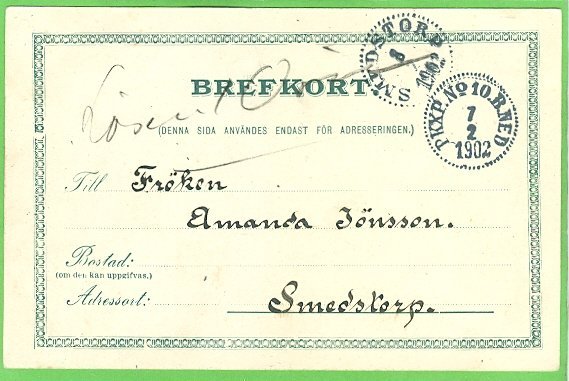 SMEDSTORP
8
1902
BREFKORT.
PKXP No 10 B.NED
7
2
1902
Lösen
(DENNA SIDA ANVÄNDES ENDAST FÖR ADRESSERINGEN.)
Till Fröken
Amanda Jönsson.
Bostad:
(om den kan uppgifvas.)
Adressort: Smedstorp.